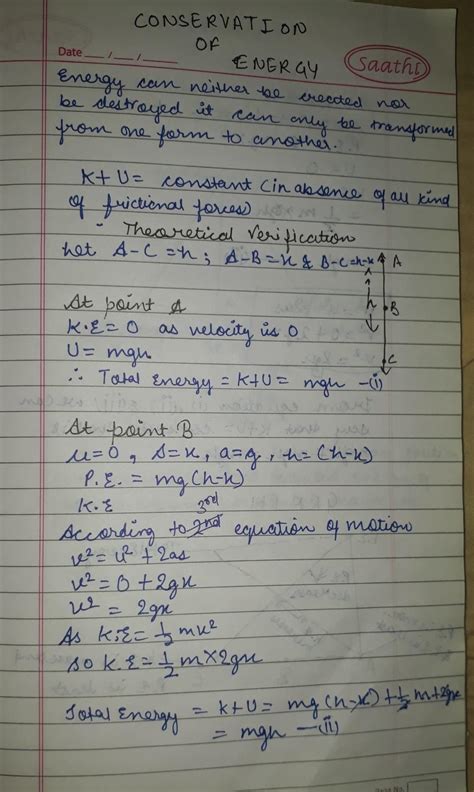 CONSERVATION
OF
ENERGY
Date __/__/__
Saathi
Energy can neither be created nor
be destroyed it can only be transformed
from one form to another.
K+U = constant (in absence of all kind
of frictional forces)
Theoretical Verification
Let A-C=h; A-B=x & B-C=h-x
A
h
B
C
At point A
K.E=0 as velocity is 0
U = mgh
∴ Total Energy = K+U = mgh —(i)
At point B
u=0, s=x, a=g, h=(h-x)
P.E. = mg(h-x)
K.E
3rd
According to 2nd equation of motion
v²=u²+2as
v²=0+2gx
v²=2gx
As K.E=½mv²
so K.E=½m×2gx
Total Energy = K+U = mg(h-x)+½m+2gx
= mgh —(ii)